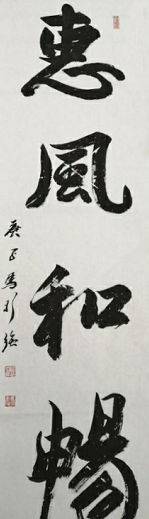 惠風和暢
庚子馬